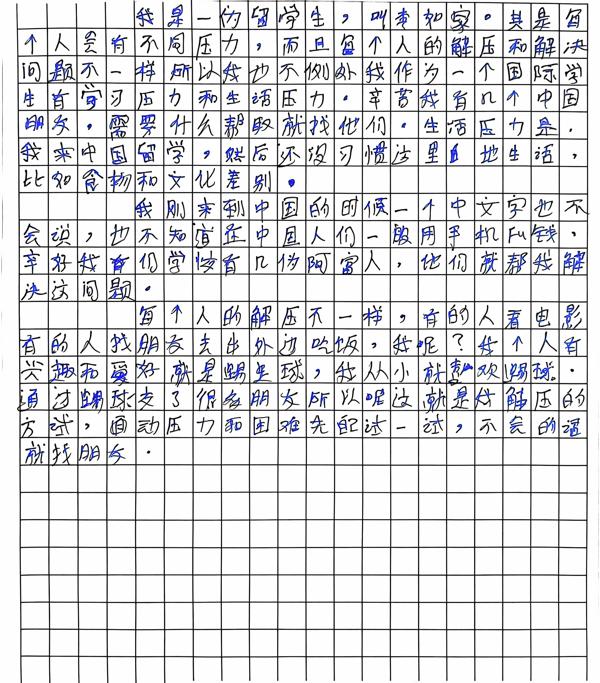 我是一伪留学生，叫李如家。其是每
个人会有不同压力，而且每个人的解压和解决
问题不一样所以我也不例外我作为一个国际学
生有学习压力和生活压力。辛苦我有几个中国
朋友，需要什么帮取就找他们。生活压力是.
我来中国留学，然后还没习惯这里 地生活，
比如食物和文化差别。
我刚来到中国的时候一个中文字也不
会说，也不知道在中国人们一般用手机Fu钱，
辛好我有们学该有几伪阿富人，他们就帮我解
决这问题。
每个人的解压不一样，有的人看电影
有的人找朋友去出外边吃饭，我呢？我个人有
兴趣和爱好就是踢足球，我从小就喜欢踢球.
通过踢球交了很多朋友所以呢这就是我解压的
方试，面动压力和困难先配试一试，不会的话
就找朋友。